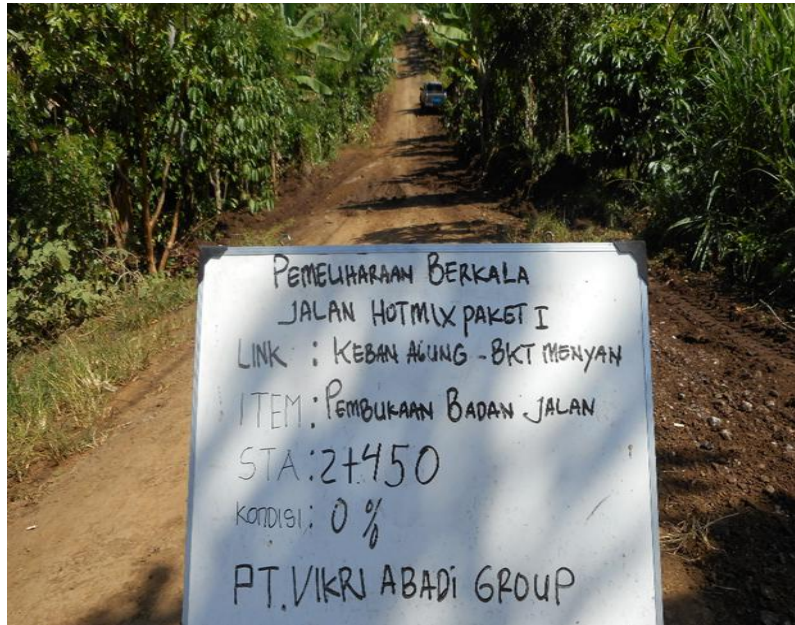 PEMELIHARAAN BERKALA
JALAN HOTMIX PAKET I
LINK : KEBAN AGUNG - BKT MENYAN
ITEM : PEMBUKAAN BADAN JALAN
STA : 2+450
KONDISI : 0 %
PT. VIKRI ABADI GROUP